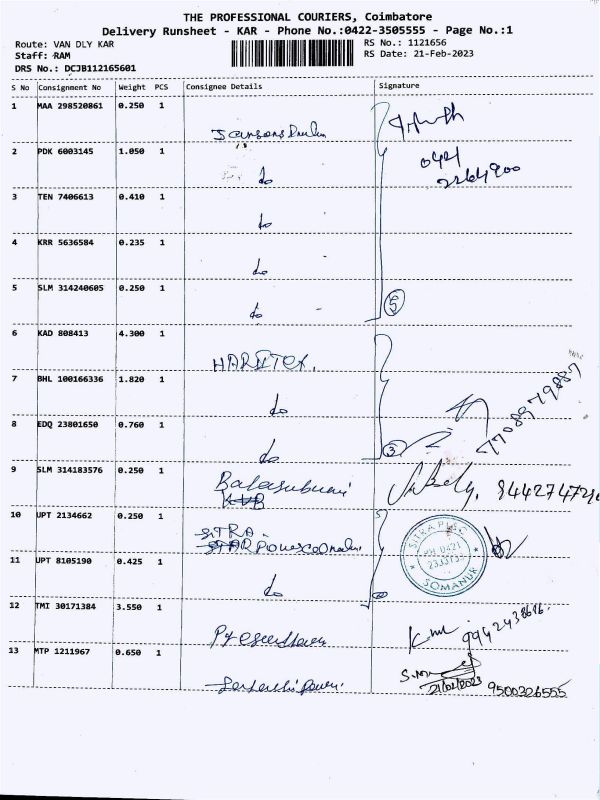 THE PROFESSIONAL COURIERS, Coimbatore
Delivery Runsheet - KAR - Phone No.:0422-3505555 - Page No.:1
Route: VAN DLY KAR
Staff: RAM
DRS No.: DCJB112165601
RS No.: 1121656
RS Date: 21-Feb-2023
S No Consignment No Weight PCS Consignee Details Signature
1 MAA 298520861 0.250 1
2 PDK 6003145 1.050 1 do
0421
2264900
3 TEN 7406613 0.410 1 do
4 KRR 5636584 0.235 1 do
5 SLM 314240605 0.250 1 do 5
6 KAD 808413 4.300 1 HARITEX.
7 BHL 100166336 1.820 1 do
7708979887
8 EDQ 23801650 0.760 1 do 3
9 SLM 314183576 0.250 1 Balasubumi
KVB
10 UPT 2134662 0.250 1 SITRA
PH 0421
SOMANUR
11 UPT 8105190 0.425 1 do
12 TMI 30171384 3.550 1 9942438616.
13 MTP 1211967 0.650 1
21/02/2023 9500326555